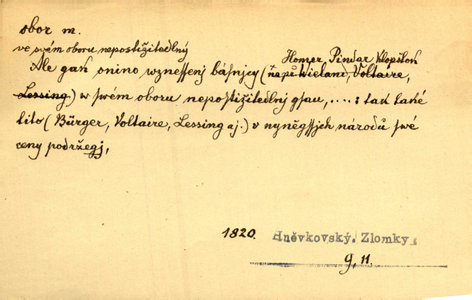 obor m.
ve svém oboru nepostižitedlný
Homer, Pindar Klopstok
Ale gak onino wznessenj básnjcy (např. Wieland, Voltaire,
Lessing) w swém oboru nepostižitedlnj gsau, ....: tak také
tito (Bürger, Voltaire, Lessing a j.) v nyněgssjch národů swé
ceny podržegj,
1820. Hněvkovský. Zlomky
9, 11.